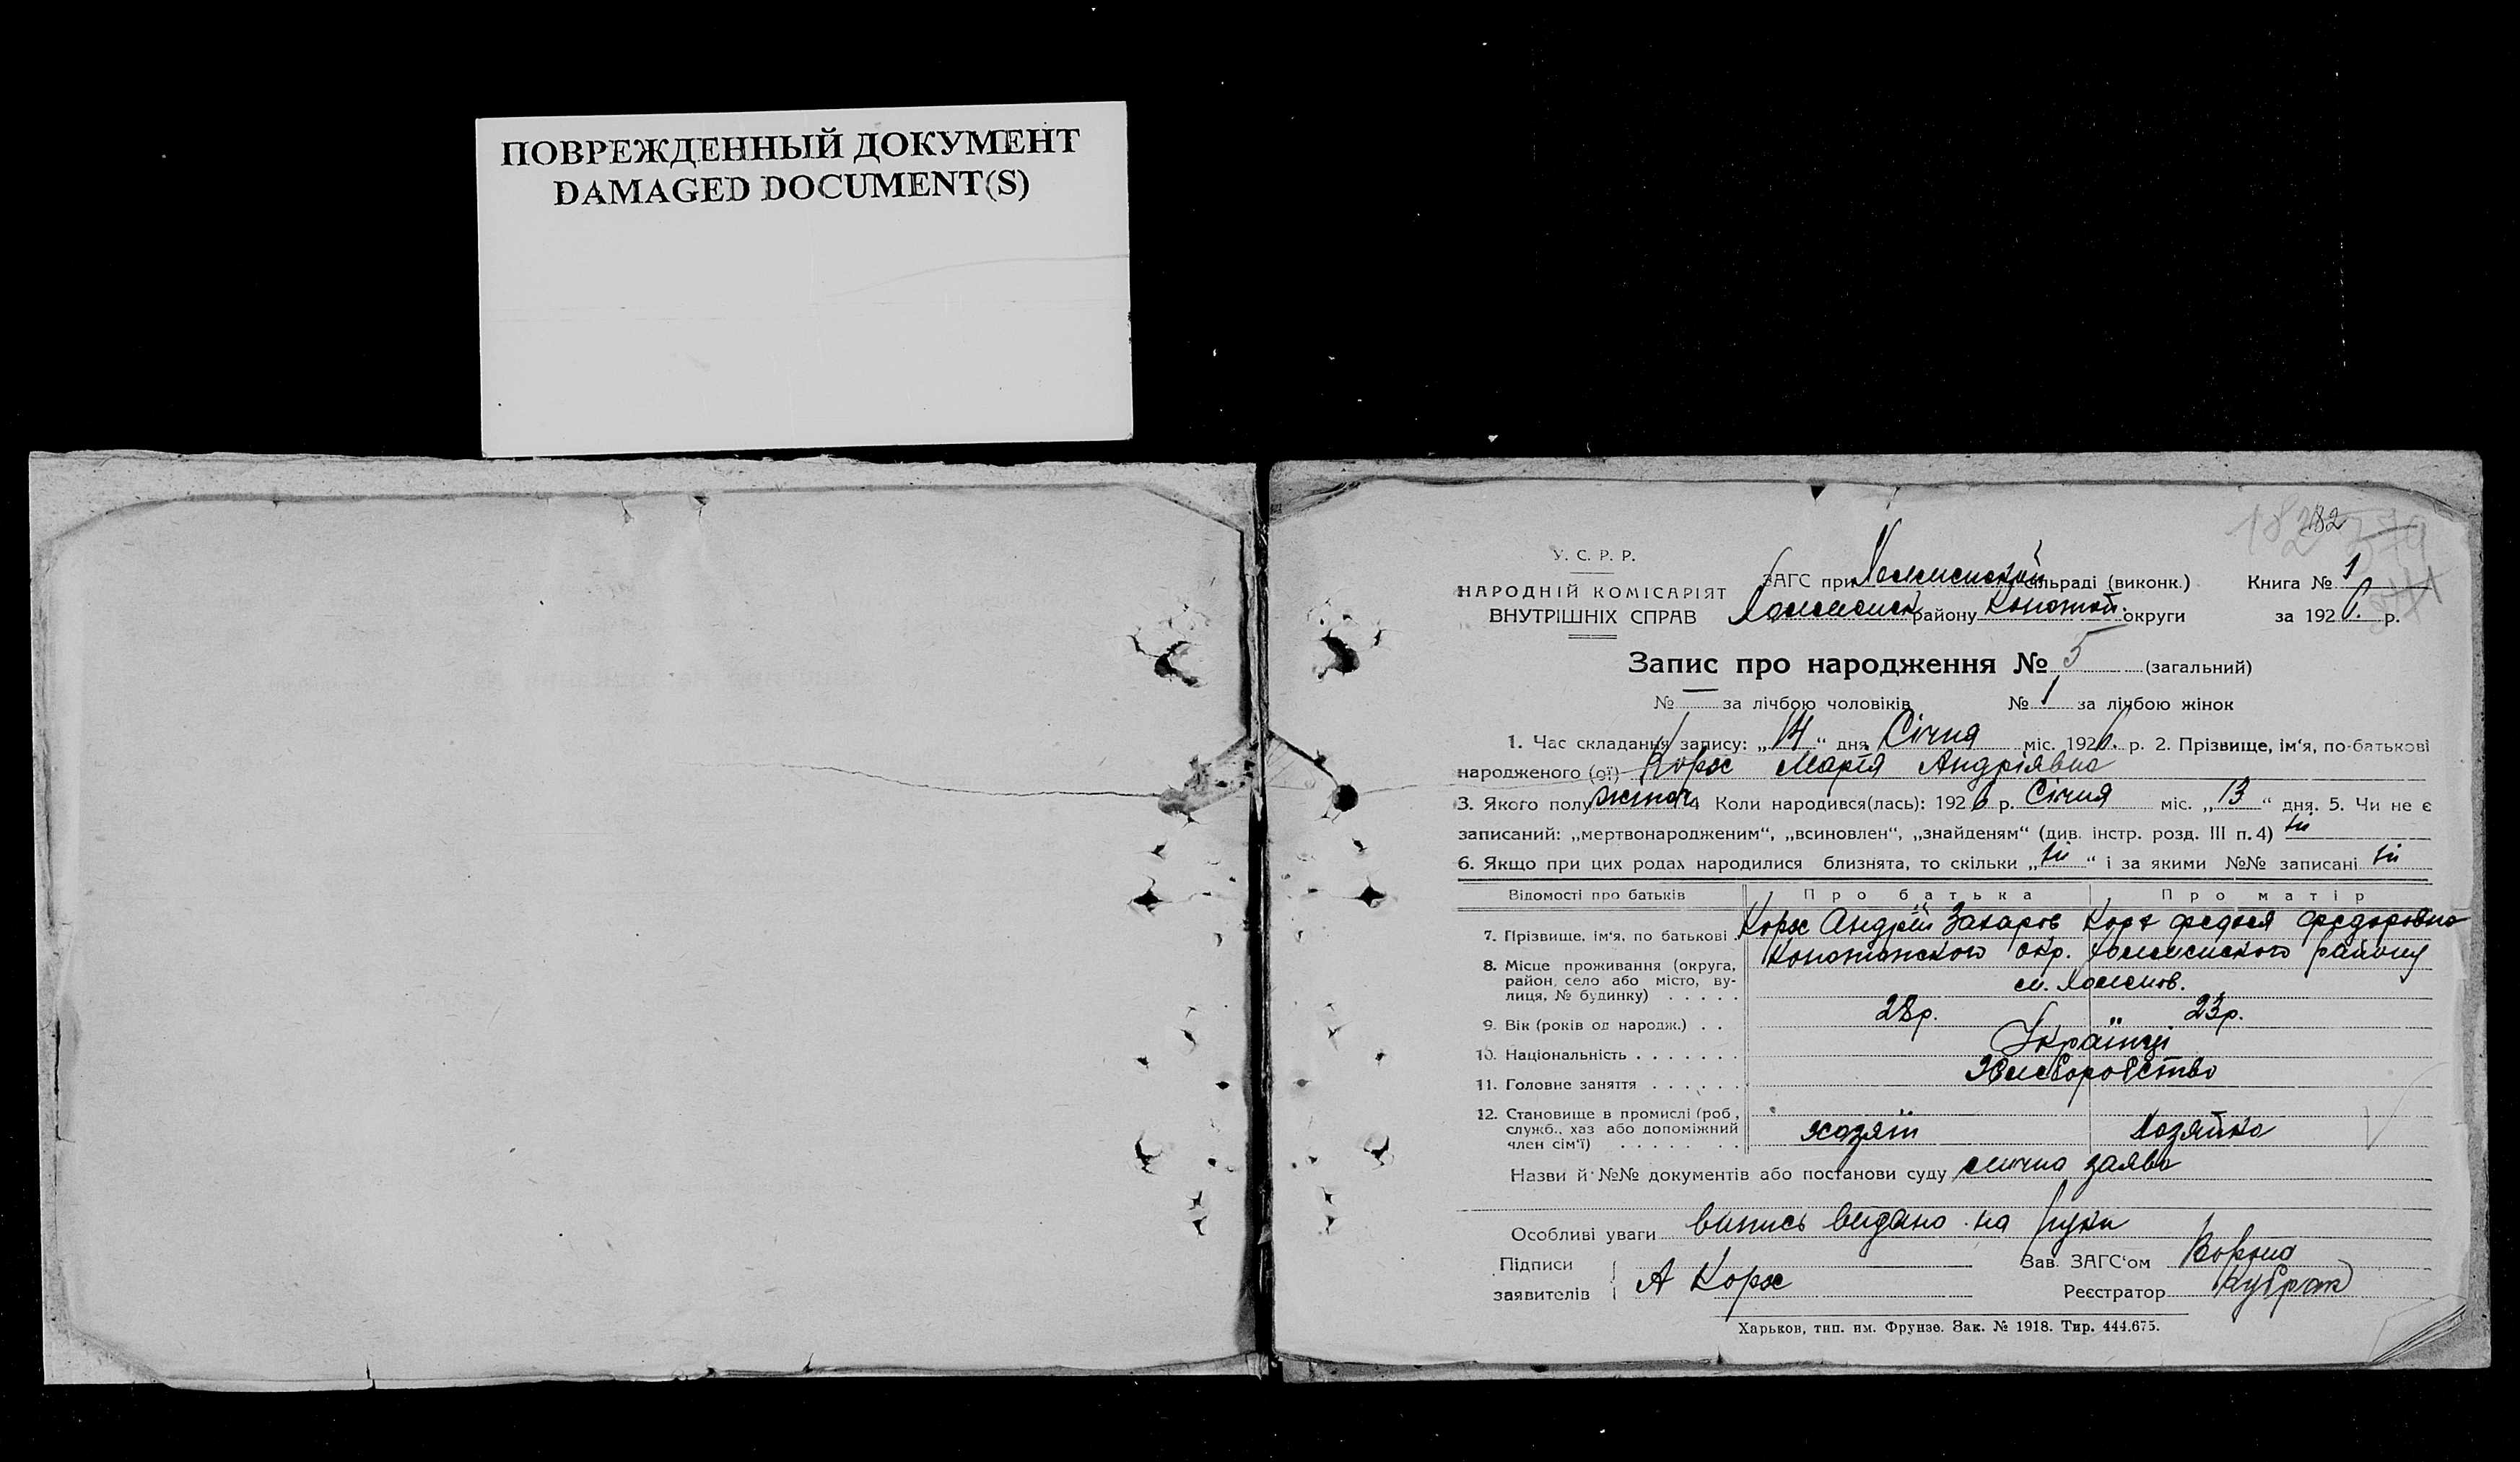 ПОВРЕЖДЕННЫЙ ДОКУМЕНТ
DAMAGED DOCUMENT(S)
182
У. С. Р. Р.
НАРОДНІЙ КОМІСАРІЯТ
ВНУТРІШНІХ СПРАВ
ЗАГС при сільраді (виконк.) Книга № 1
району Конотоп. округи за 1926. р.
Запис про народження № 5 (загальний)
№ — за лічбою чоловіків № 1 за лічбою жінок
1. Час складання запису: „14“ дня Січня міс. 1926. р. 2. Прізвище, ім‘я, по-батькові
народженого (ої) Корж Марія Андріявна
3. Якого полу жіноч. 4 Коли народився(лась): 1926 р. Січня міс. „13“ дня. 5. Чи не є
записаний: „мертвонародженим“, „всиновлен“, „знайденям“ (див. інстр. розд. III п. 4) ні
6. Якщо при цих родах народилися близнята, то скільки „ні“ і за якими №№ записані ні
Відомості про батьків Про батька Про матір
7. Прізвище, ім‘я, по батькові Корж Андрій Захаров Корж Федося Федоровна
8. Місце проживання (округа, район, село або місто, вулиця, № будинку) Конотопского окр. району
м.
9. Вік (років од народж.) 28р. 23р.
10. Національність Українці
11. Головне заняття Хліборобство
12. Становище в промислі (роб, служб., хаз або допоміжний член сім‘ї) хазяїн хазяйка
Назви й №№ документів або постанови суду лична заява
Особливі уваги випись видано на руки
Підписи заявителів А Корж
Зав. ЗАГС‘ом
Реєстратор
Харьков, тип. им. Фрунзе. Зак. № 1918. Тир. 444.675.